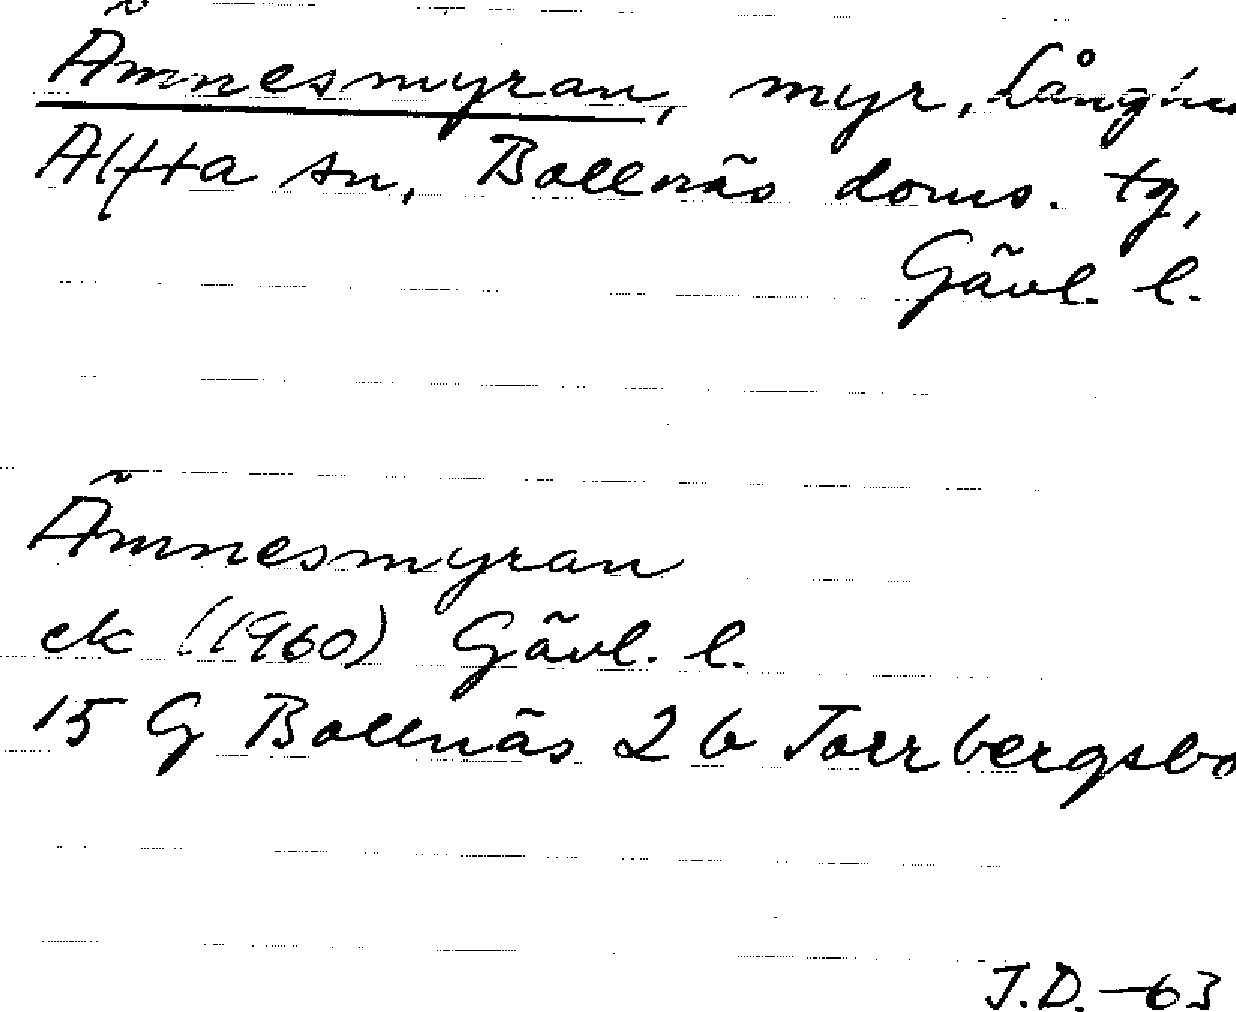 Ämnesmyran, myr,
Alfta sn, Bollnäs doms. tg,
Gävl. l.
Ämnesmyran
ek (1960) Gävl. l.
15 G Bollnäs 2 b Torrbergsbo
J.D. -63